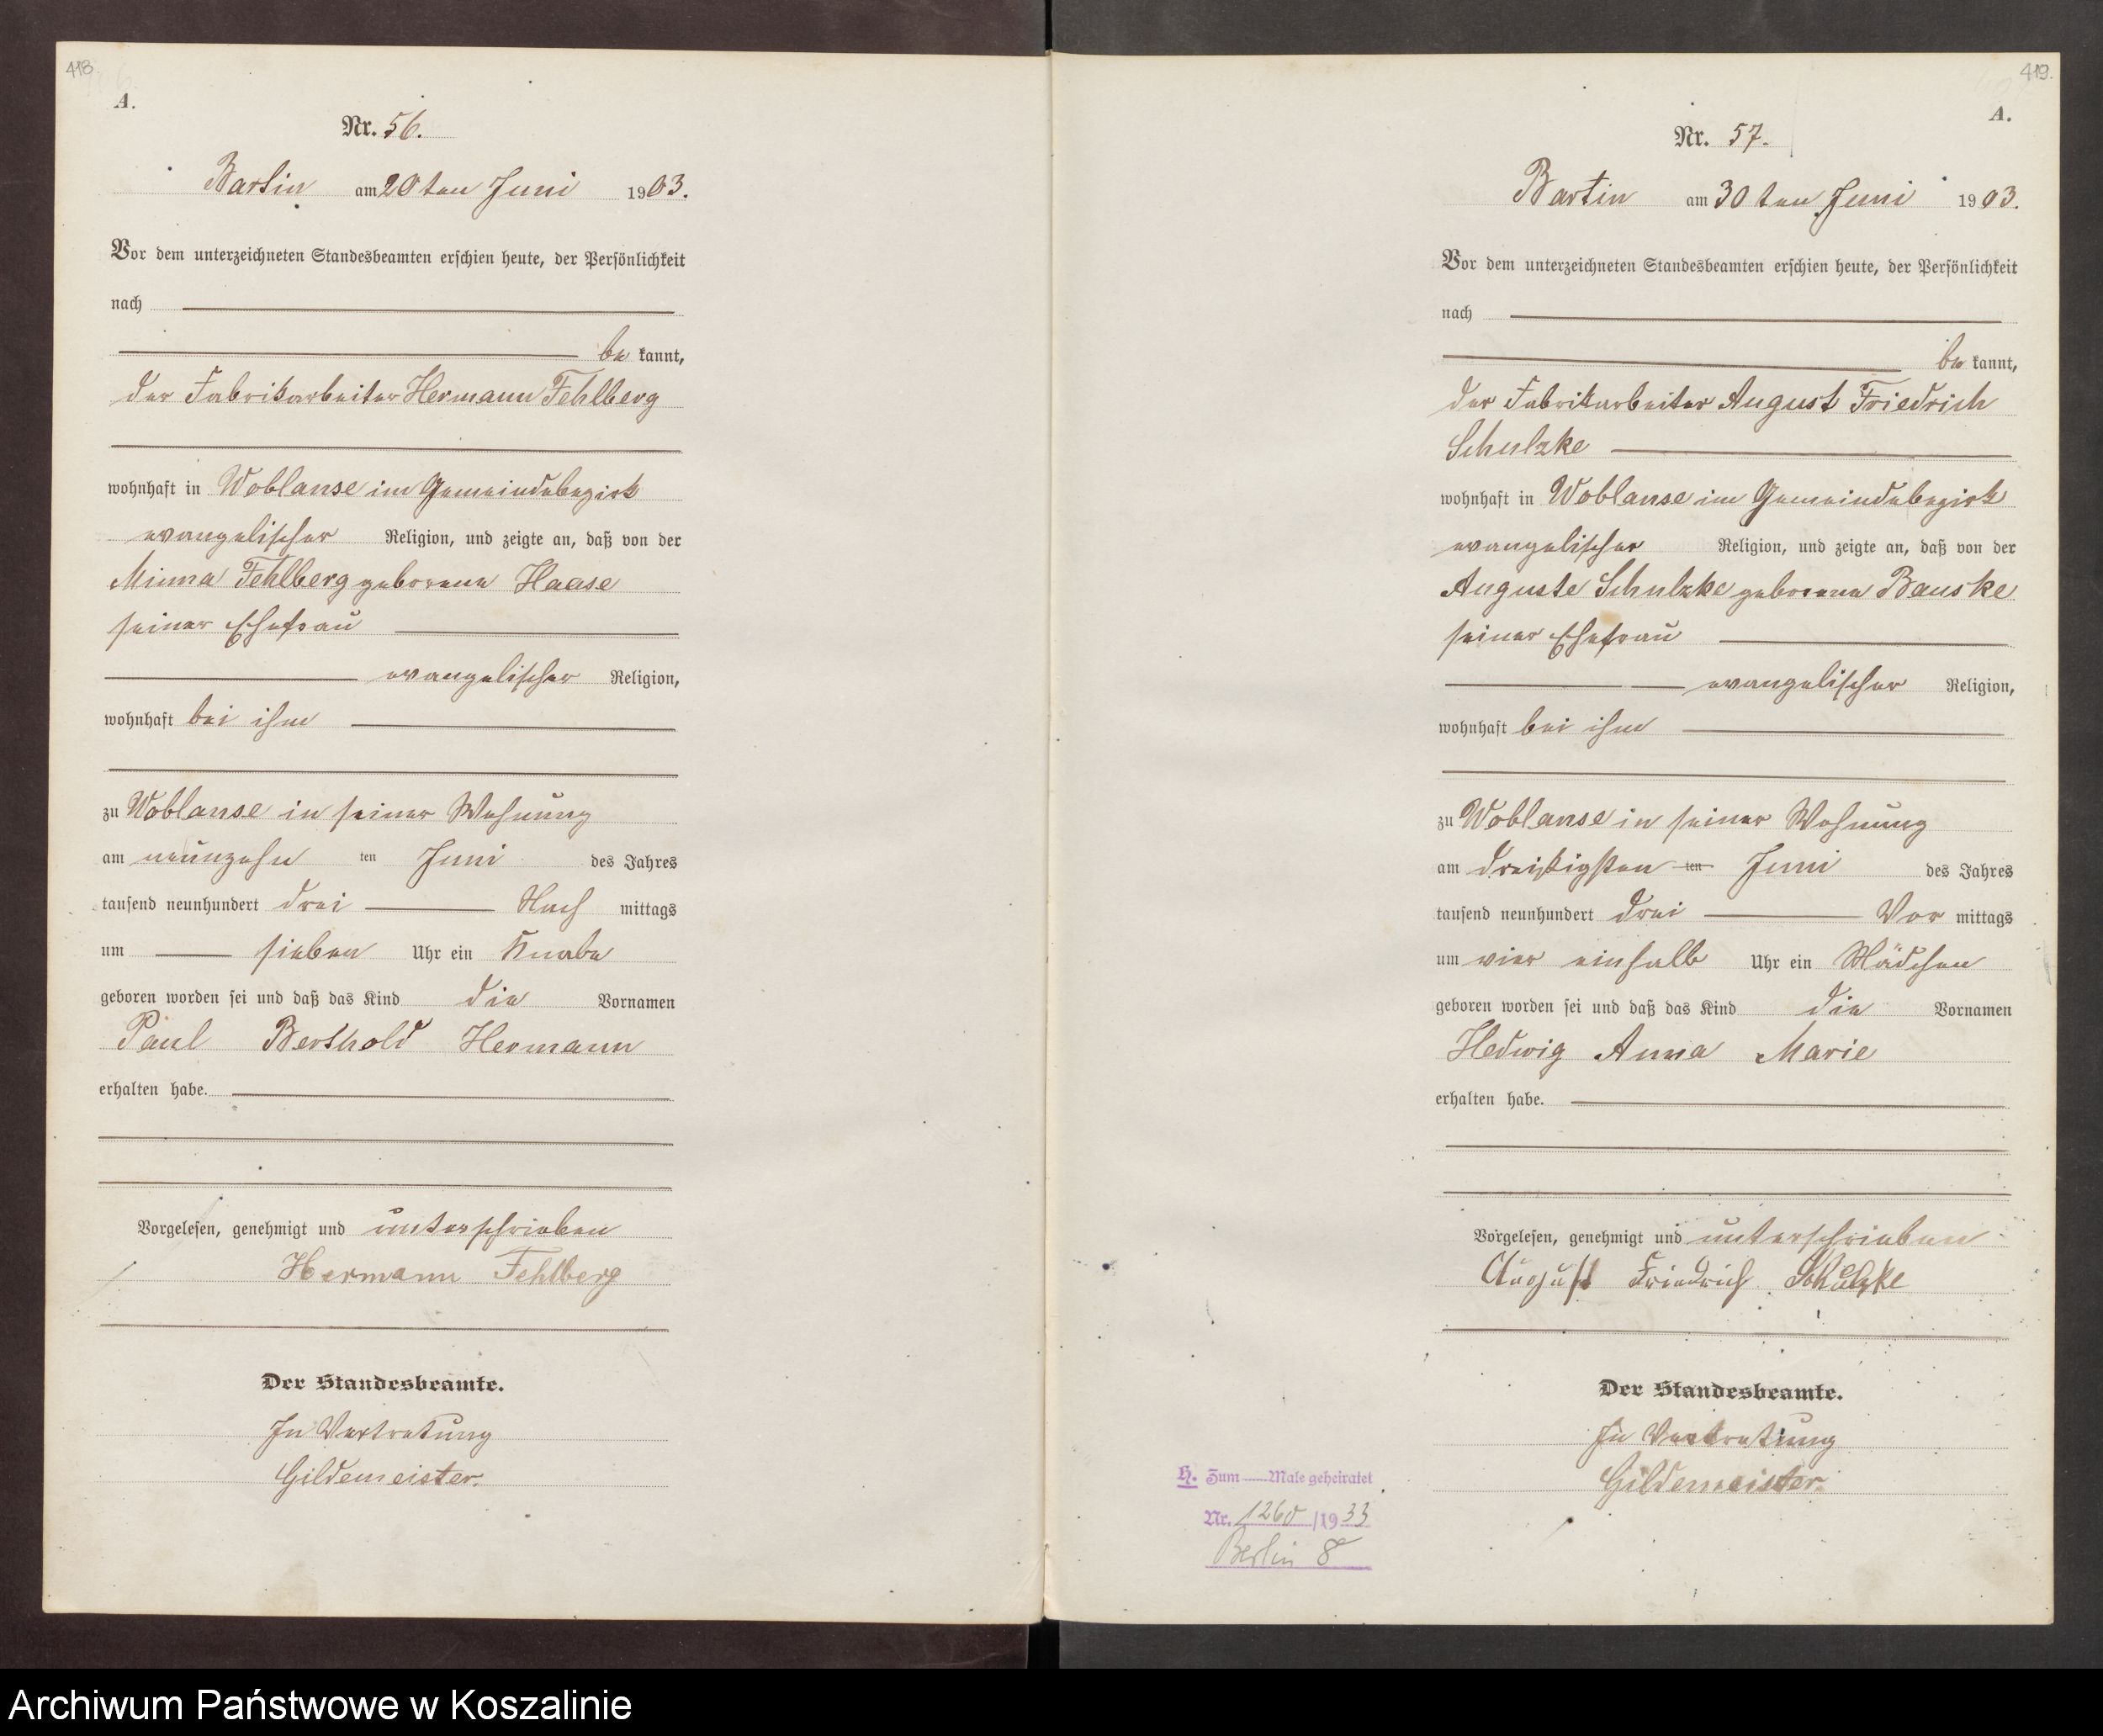 418
A.
Nr. 56.
Bartin am 20ten Juni 1903.
Vor dem unterzeichneten Standesbeamten erschien heute, der Persönlichkeit
nach
be kannt,
der Fabrikarbeiter Hermann Fehlberg
wohnhaft in Woblanse im Gemeindebezirk
evangelischer Religion, und zeigte an, daß von der
Minna Fehlberg geborene Haase
seiner Ehefrau
evangelischer Religion,
wohnhaft bei ihm
zu Woblanse in seiner Wohnung
am neunzehn ten Juni des Jahres
tausend neunhundert drei Nach mittags
um sieben Uhr ein Knabe
geboren worden sei und daß das Kind die Vornamen
Paul Berthold Hermann
erhalten habe.
Vorgelesen, genehmigt und unterschrieben
Hermann Fehlberg
Der Standesbeamte.
In Vertretung
Gildemeister.
419.
A.
Nr. 57.
Bartin am 30ten Juni 1903.
Vor dem unterzeichneten Standesbeamten erschien heute, der Persönlichkeit
nach
be kannt,
der Fabrikarbeiter August Friedrich
Schulzke
wohnhaft in Woblanse im Gemeindebezirk
evangelischer Religion, und zeigte an, daß von der
Auguste Schulzke geborene Bauske
seiner Ehefrau
evangelischer Religion,
wohnhaft bei ihm
zu Woblanse in seiner Wohnung
am dreißigsten ten Juni des Jahres
tausend neunhundert drei Vor mittags
um vier einhalb Uhr ein Mädchen
geboren worden sei und daß das Kind die Vornamen
Hedwig Anna Marie
erhalten habe.
Vorgelesen, genehmigt und unterschrieben
August Friedrich Schulzke
Der Standesbeamte.
In Vertretung
Gildemeister.
H. Zum Male geheiratet
Nr. 1260/1933
Berlin 8
Archiwum Państwowe w Koszalinie